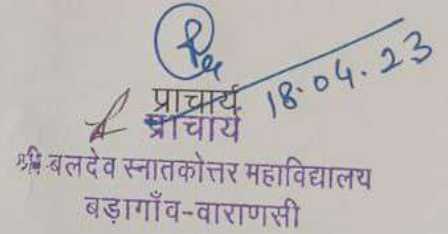 18.04.23
प्राचार्य
प्राचार्य
बलदेव स्नातकोत्तर महाविद्यालय
बड़ागाँव-वाराणसी